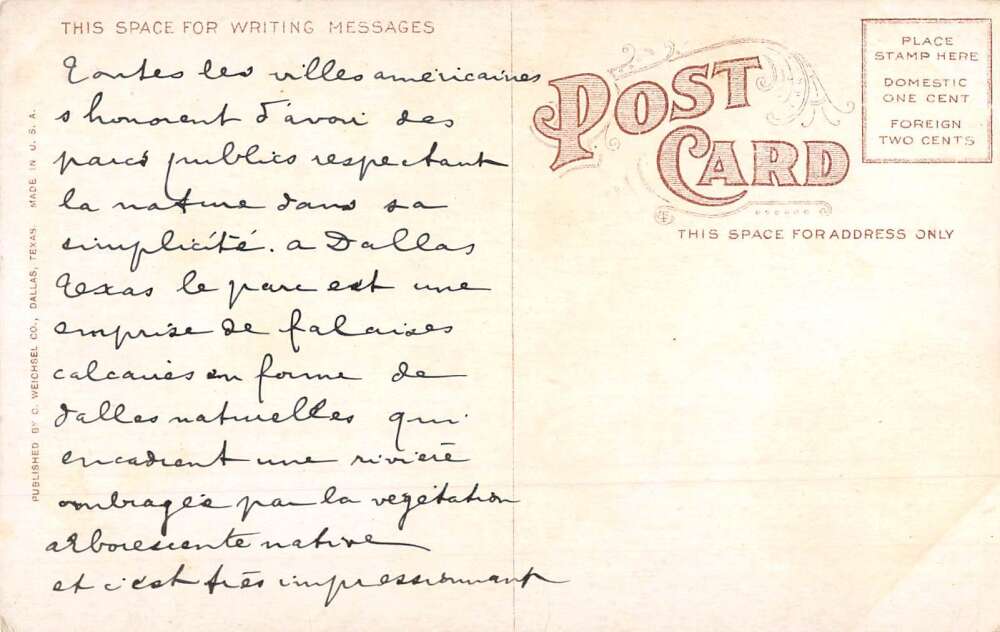 THIS SPACE FOR WRITING MESSAGES
Toutes les villes américaines
s'honorent d'avoir des
parcs publics respectant
la nature dans sa
simplicité. a Dallas
Texas le parc est une
emprise de falaises
calcaires en forme de
dalles naturelles qui
encadrent une rivière
ombragée par la vegetation
arborescente native
et c'est très impressionnant
PUBLISHED BY C. WEICHSEL CO., DALLAS, TEXAS. MADE IN U. S. A.
POST
CARD
THIS SPACE FOR ADDRESS ONLY
PLACE
STAMP HERE
DOMESTIC
ONE CENT
FOREIGN
TWO CENTS